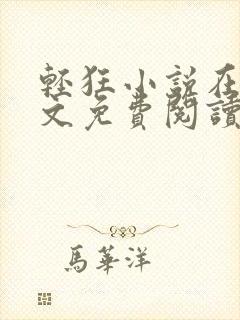 輕狂小說在
文免費閱讀
馬華洋